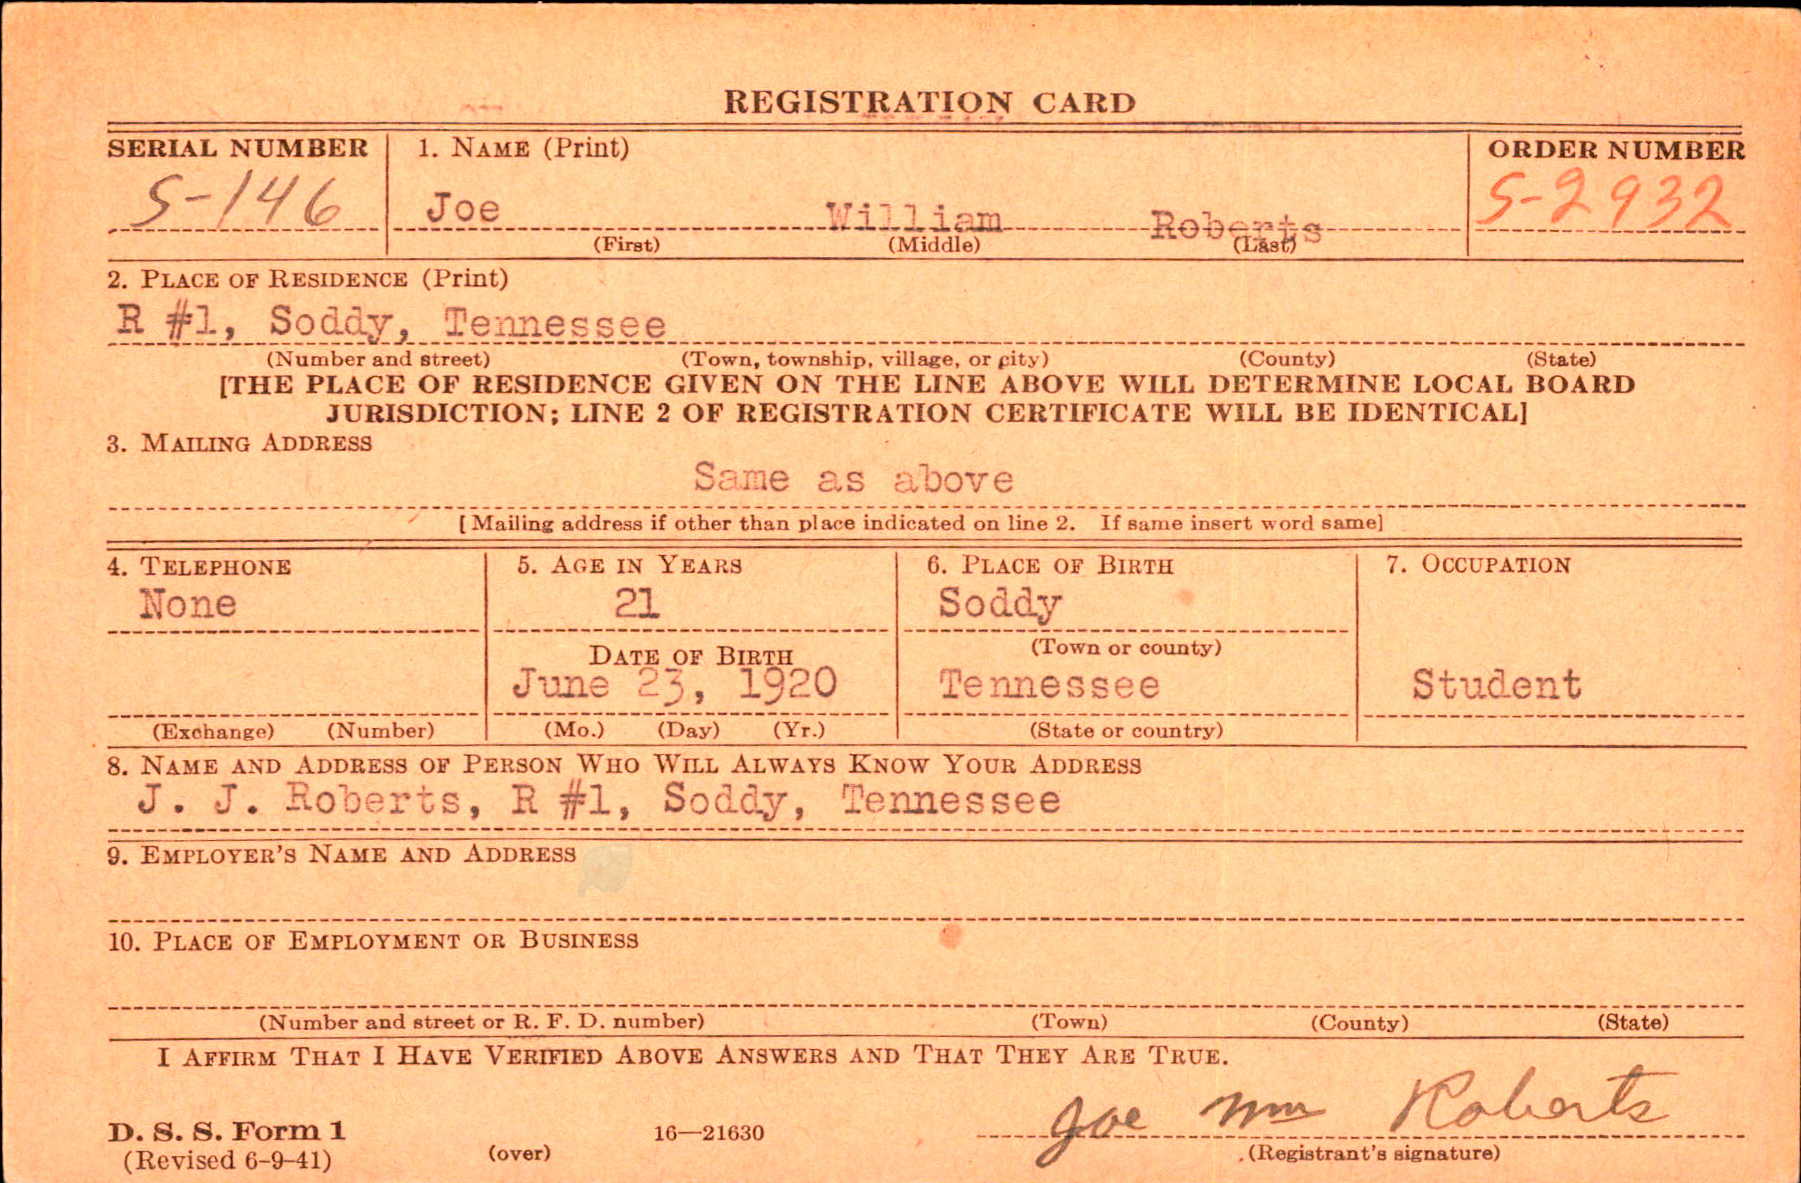 REGISTRATION CARD
SERIAL NUMBER 1. NAME (Print) ORDER NUMBER
S-146 Joe William Roberts S-2932
(First) (Middle) (Last)
2. PLACE OF RESIDENCE (Print)
R #1, Soddy, Tennessee
(Number and street) (Town, township, village, or city) (County) (State)
[THE PLACE OF RESIDENCE GIVEN ON THE LINE ABOVE WILL DETERMINE LOCAL BOARD
JURISDICTION; LINE 2 OF REGISTRATION CERTIFICATE WILL BE IDENTICAL]
3. MAILING ADDRESS
Same as above
[Mailing address if other than place indicated on line 2. If same insert word same]
4. TELEPHONE 5. AGE IN YEARS 6. PLACE OF BIRTH 7. OCCUPATION
None 21 Soddy
DATE OF BIRTH (Town or county)
June 23, 1920 Tennessee Student
(Exchange) (Number) (Mo.) (Day) (Yr.) (State or country)
8. NAME AND ADDRESS OF PERSON WHO WILL ALWAYS KNOW YOUR ADDRESS
J. J. Roberts, R #1, Soddy, Tennessee
9. EMPLOYER'S NAME AND ADDRESS
10. PLACE OF EMPLOYMENT OR BUSINESS
(Number and street or R. F. D. number) (Town) (County) (State)
I AFFIRM THAT I HAVE VERIFIED ABOVE ANSWERS AND THAT THEY ARE TRUE.
Joe Wm Roberts
D. S. S. Form 1 16—21630
(Revised 6-9-41) (over) (Registrant's signature)